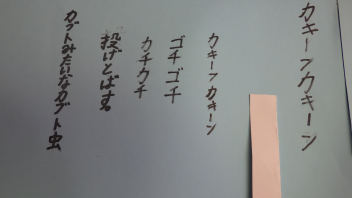 カキーンカキーン
カキーンカキーン
ゴチゴチ
カチカチ
投げとばす。
カブトみたいなカブト虫